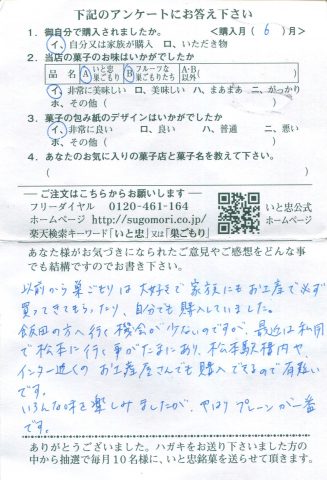 下記のアンケートにお答え下さい
1．御自分で購入されましたか。 ＜購入月（ 6 ）月＞
イ、自分又は家族が購入 ロ、いただき物
2．当店の菓子のお味はいかがでしたか
品 名 A いと忠巣ごもり B フルーツな巣ごもりたち A・B以外
イ、非常に美味しい ロ、美味しい ハ、まあまあ ニ、がっかり
ホ、その他（ ）
3．菓子の包み紙のデザインはいかがでしたか
イ、非常に良い ロ、良い ハ、普通 ニ、悪い
ホ、その他（ ）
4．あなたのお気に入りの菓子店と菓子名を教えて下さい。
（ ）
ご注文はこちらからお願いします
フリーダイヤル 0120-461-164
ホームページ http://sugomori.co.jp/
楽天検索キーワード「いと忠」又は「巣ごもり」
いと忠公式
ホームページ
あなた様がお気づきになられたご意見やご感想をどんな事
でも結構ですのでお書き下さい。
以前から巣ごもりは大好きで家族にもお土産で必ず
買ってきてもらったり、自分でも購入していました。
飯田の方へ行く機会が少ないのですが、最近は私用
で松本に行く事がたまにあり、松本駅構内や、
インター近くのお土産屋さんでも購入できるので有難い
です。
いろんな味を楽しみましたが、やはりプレーンが一番
です。
ありがとうございました。ハガキをお送り下さいました方の
中から抽選で毎月10名様に、いと忠銘菓を送らせて頂きます。